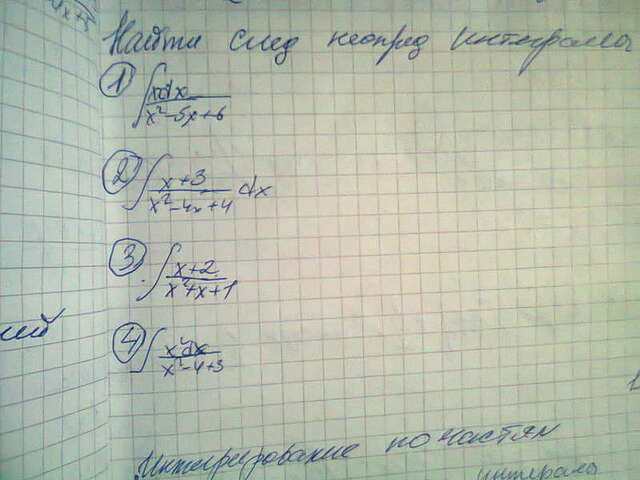 4x+5
Найти след неопред интегралы
1 ∫ xdx / x²-5x+6
2 ∫ x+3 / x²-4x+4 dx
3 ∫ x+2 / x²+x+1
4 ∫ x²dx / x²-4+3
ий
1
Интегрирование по частям
интегралы